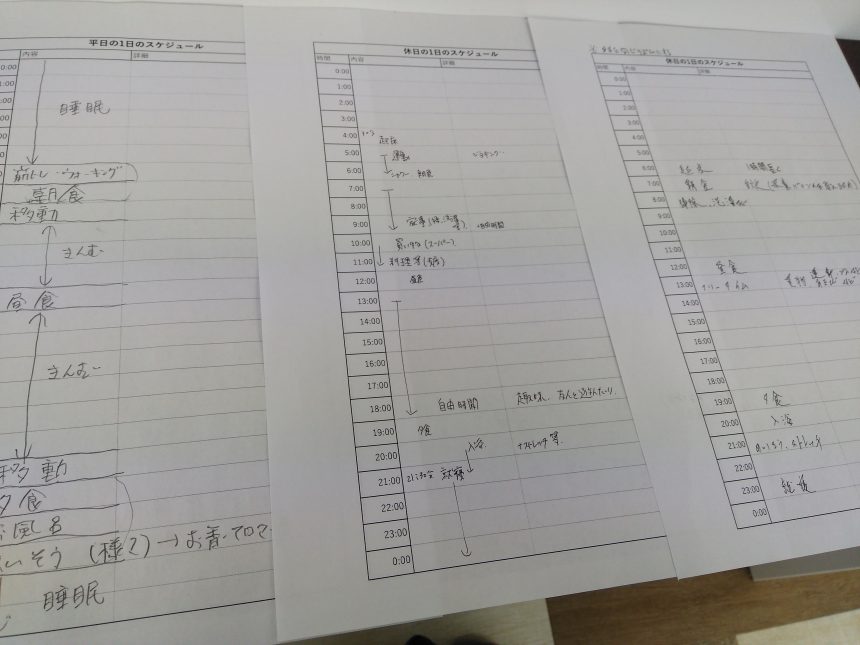 平日の1日のスケジュール
内容 詳細
0:00
睡眠
筋トレ・ウォーキング
朝食
移動
きんむ
昼食
きんむ
移動
夕食
お風呂
(様々)→お香・アロマ
睡眠
休日の1日のスケジュール
時間 内容 詳細
0:00
1:00
2:00
3:00
4:00 起床
5:00 運動 ジョギング
6:00 シャワー 朝食
7:00
8:00
9:00 家事
10:00 買い物(スーパー)
11:00 料理等
12:00 昼食
13:00
14:00
15:00
16:00
17:00
18:00 自由時間 趣味、友人と遊んだり
19:00 夕食
20:00 入浴 ストレッチ等
21:00 21:30分 就寝
22:00
23:00
0:00
休日の1日のスケジュール
時間 内容 詳細
0:00
1:00
2:00
3:00
4:00
5:00
6:00 起床
7:00 朝食
8:00 掃除、洗濯
9:00
10:00
11:00
12:00 昼食
13:00 フリータイム
14:00
15:00
16:00
17:00
18:00
19:00 夕食
20:00 入浴
21:00 めいそう、ストレッチ
22:00
23:00 就寝
0:00